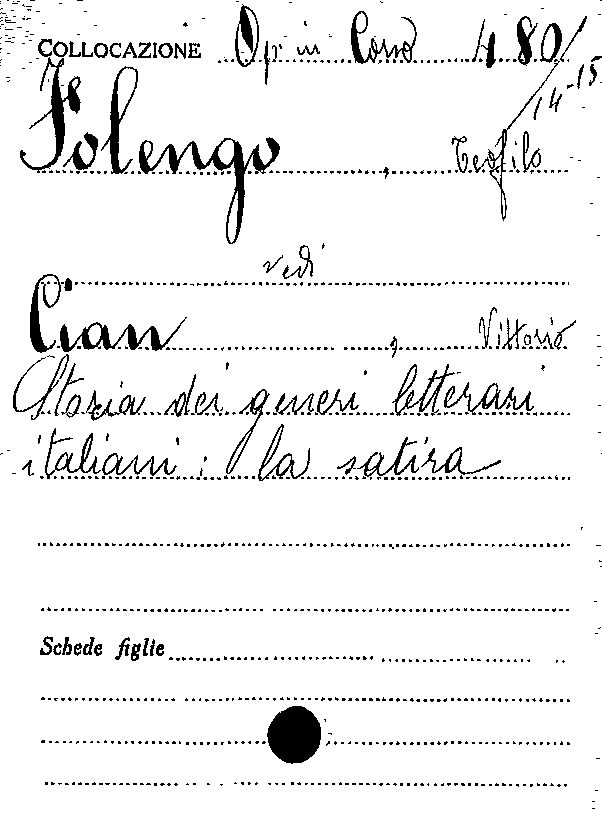 COLLOCAZIONE Op in Corso 480/14-15
Folengo, Teofilo
vedi
Cian, Vittorio
Storia dei generi letterari
italiani: la satira
Schede figlie